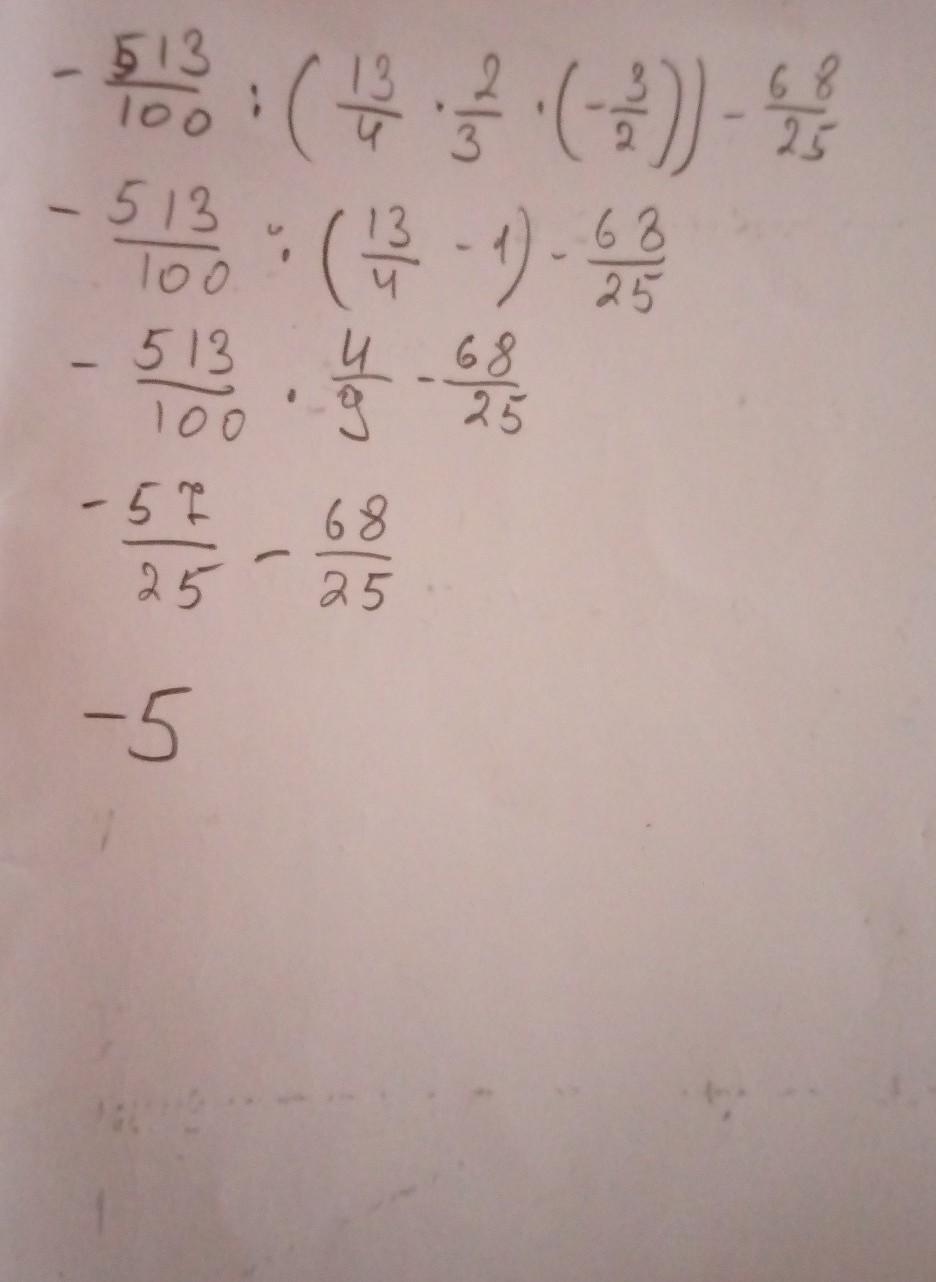 - 513/100 : (13/4 · 2/3 · (-3/2)) - 68/25
- 513/100 ÷ (13/4 - 1) - 68/25
- 513/100 · 4/9 - 68/25
- 57/25 - 68/25
-5